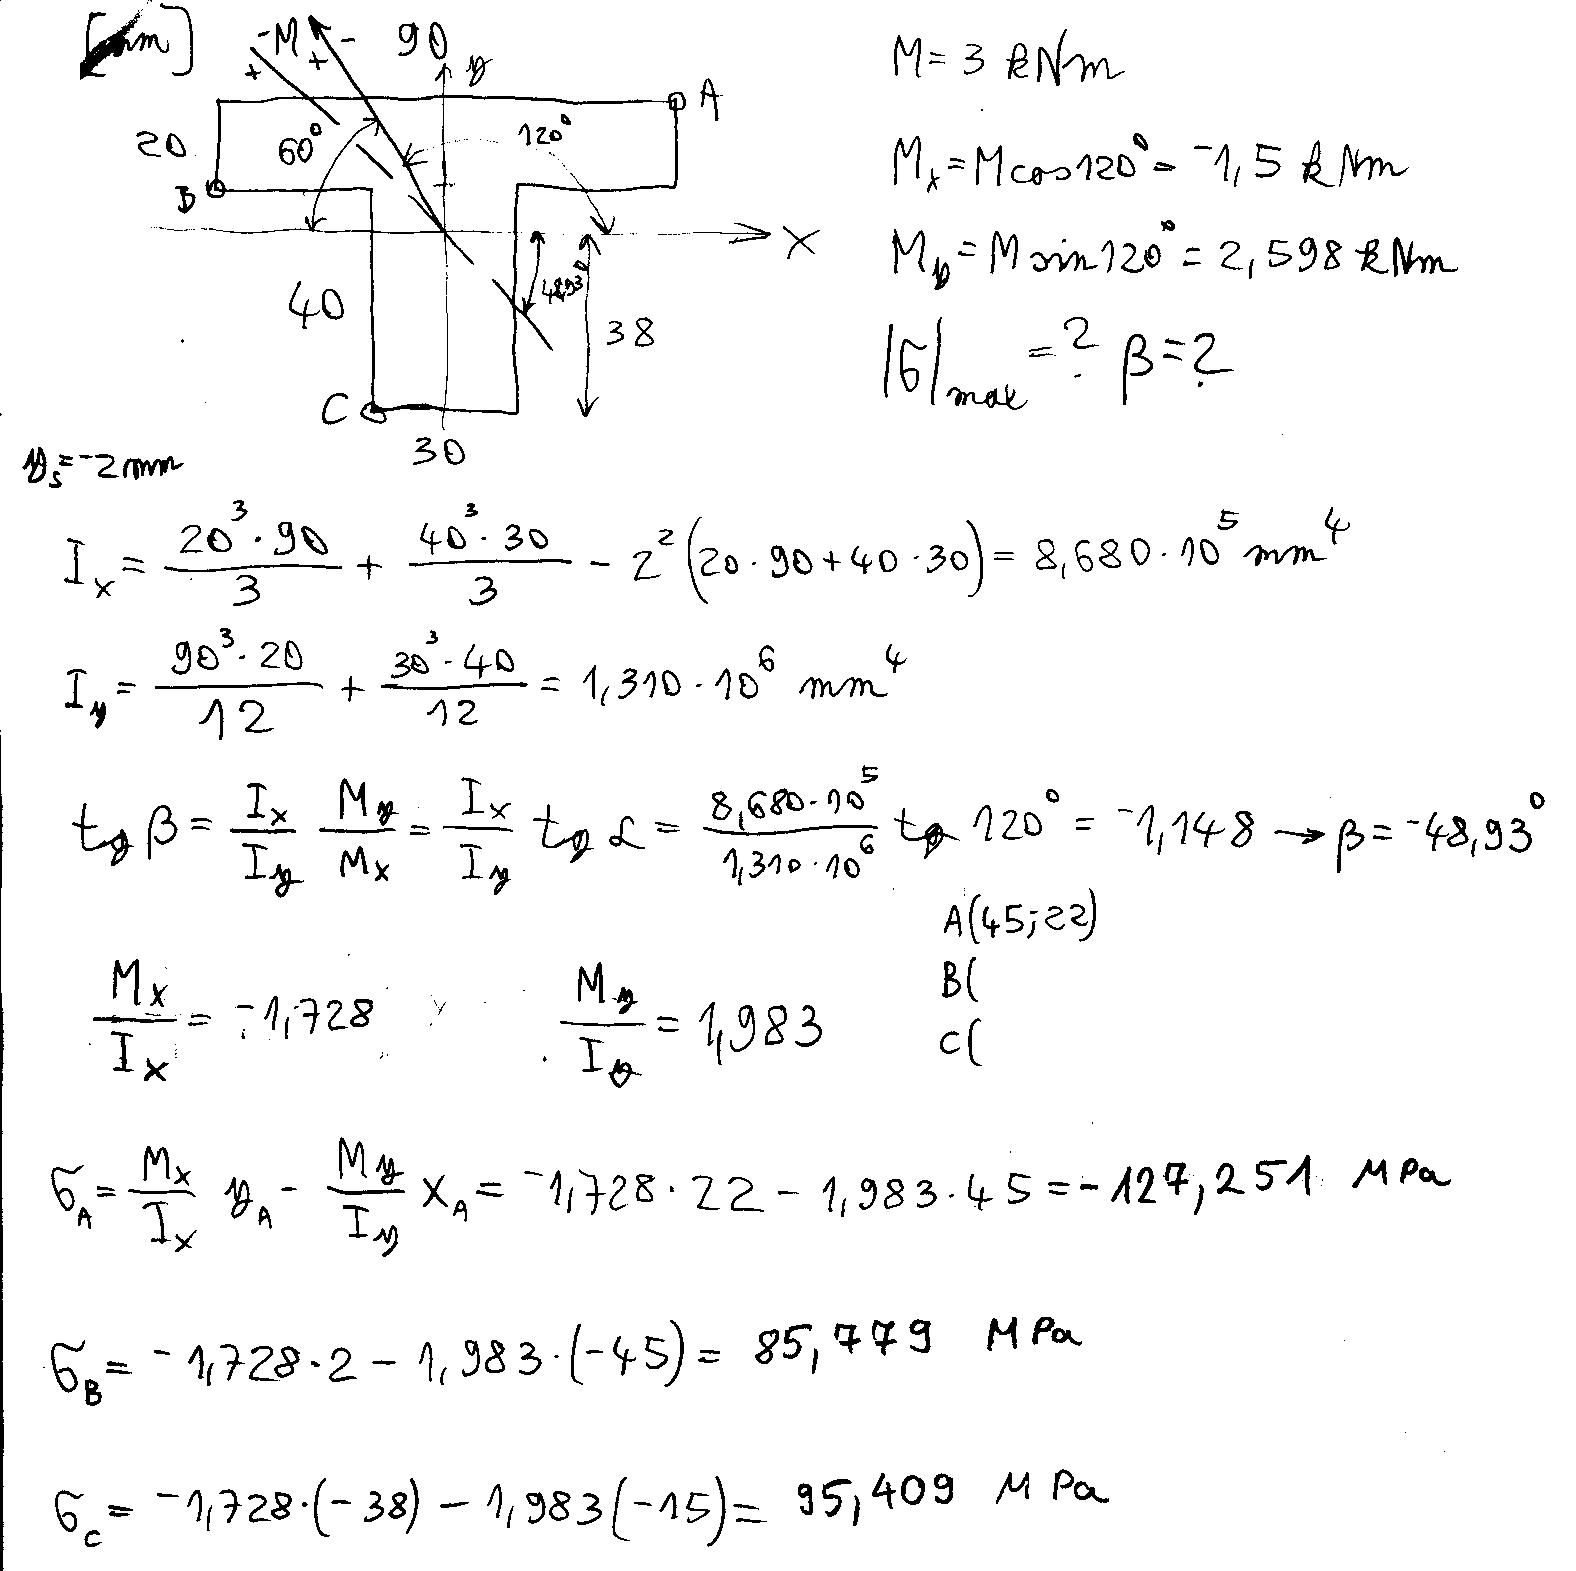 [mm]
-M - 90 y
+ +
M = 3 kNm
A
20 60° 120°
Mx = M cos 120° = -1,5 kNm
B
x
My = M sin 120° = 2,598 kNm
40 48,93° 38
|σ|max = ? β = ?
C
30
ys = -2 mm
Ix = 20³·90/3 + 40³·30/3 - 2²(20·90+40·30) = 8,680·10⁵ mm⁴
Iy = 90³·20/12 + 30³·40/12 = 1,310·10⁶ mm⁴
tg β = Ix/Iy My/Mx = Ix/Iy tg α = 8,680·10⁵/1,310·10⁶ tg 120° = -1,148 → β = -48,93°
A(45;22)
B(
C(
Mx/Ix = -1,728 My/Iy = 1,983
σA = Mx/Ix yA - My/Iy xA = -1,728·22 - 1,983·45 = -127,251 MPa
σB = -1,728·2 - 1,983·(-45) = 85,779 MPa
σC = -1,728·(-38) - 1,983(-15) = 95,409 MPa